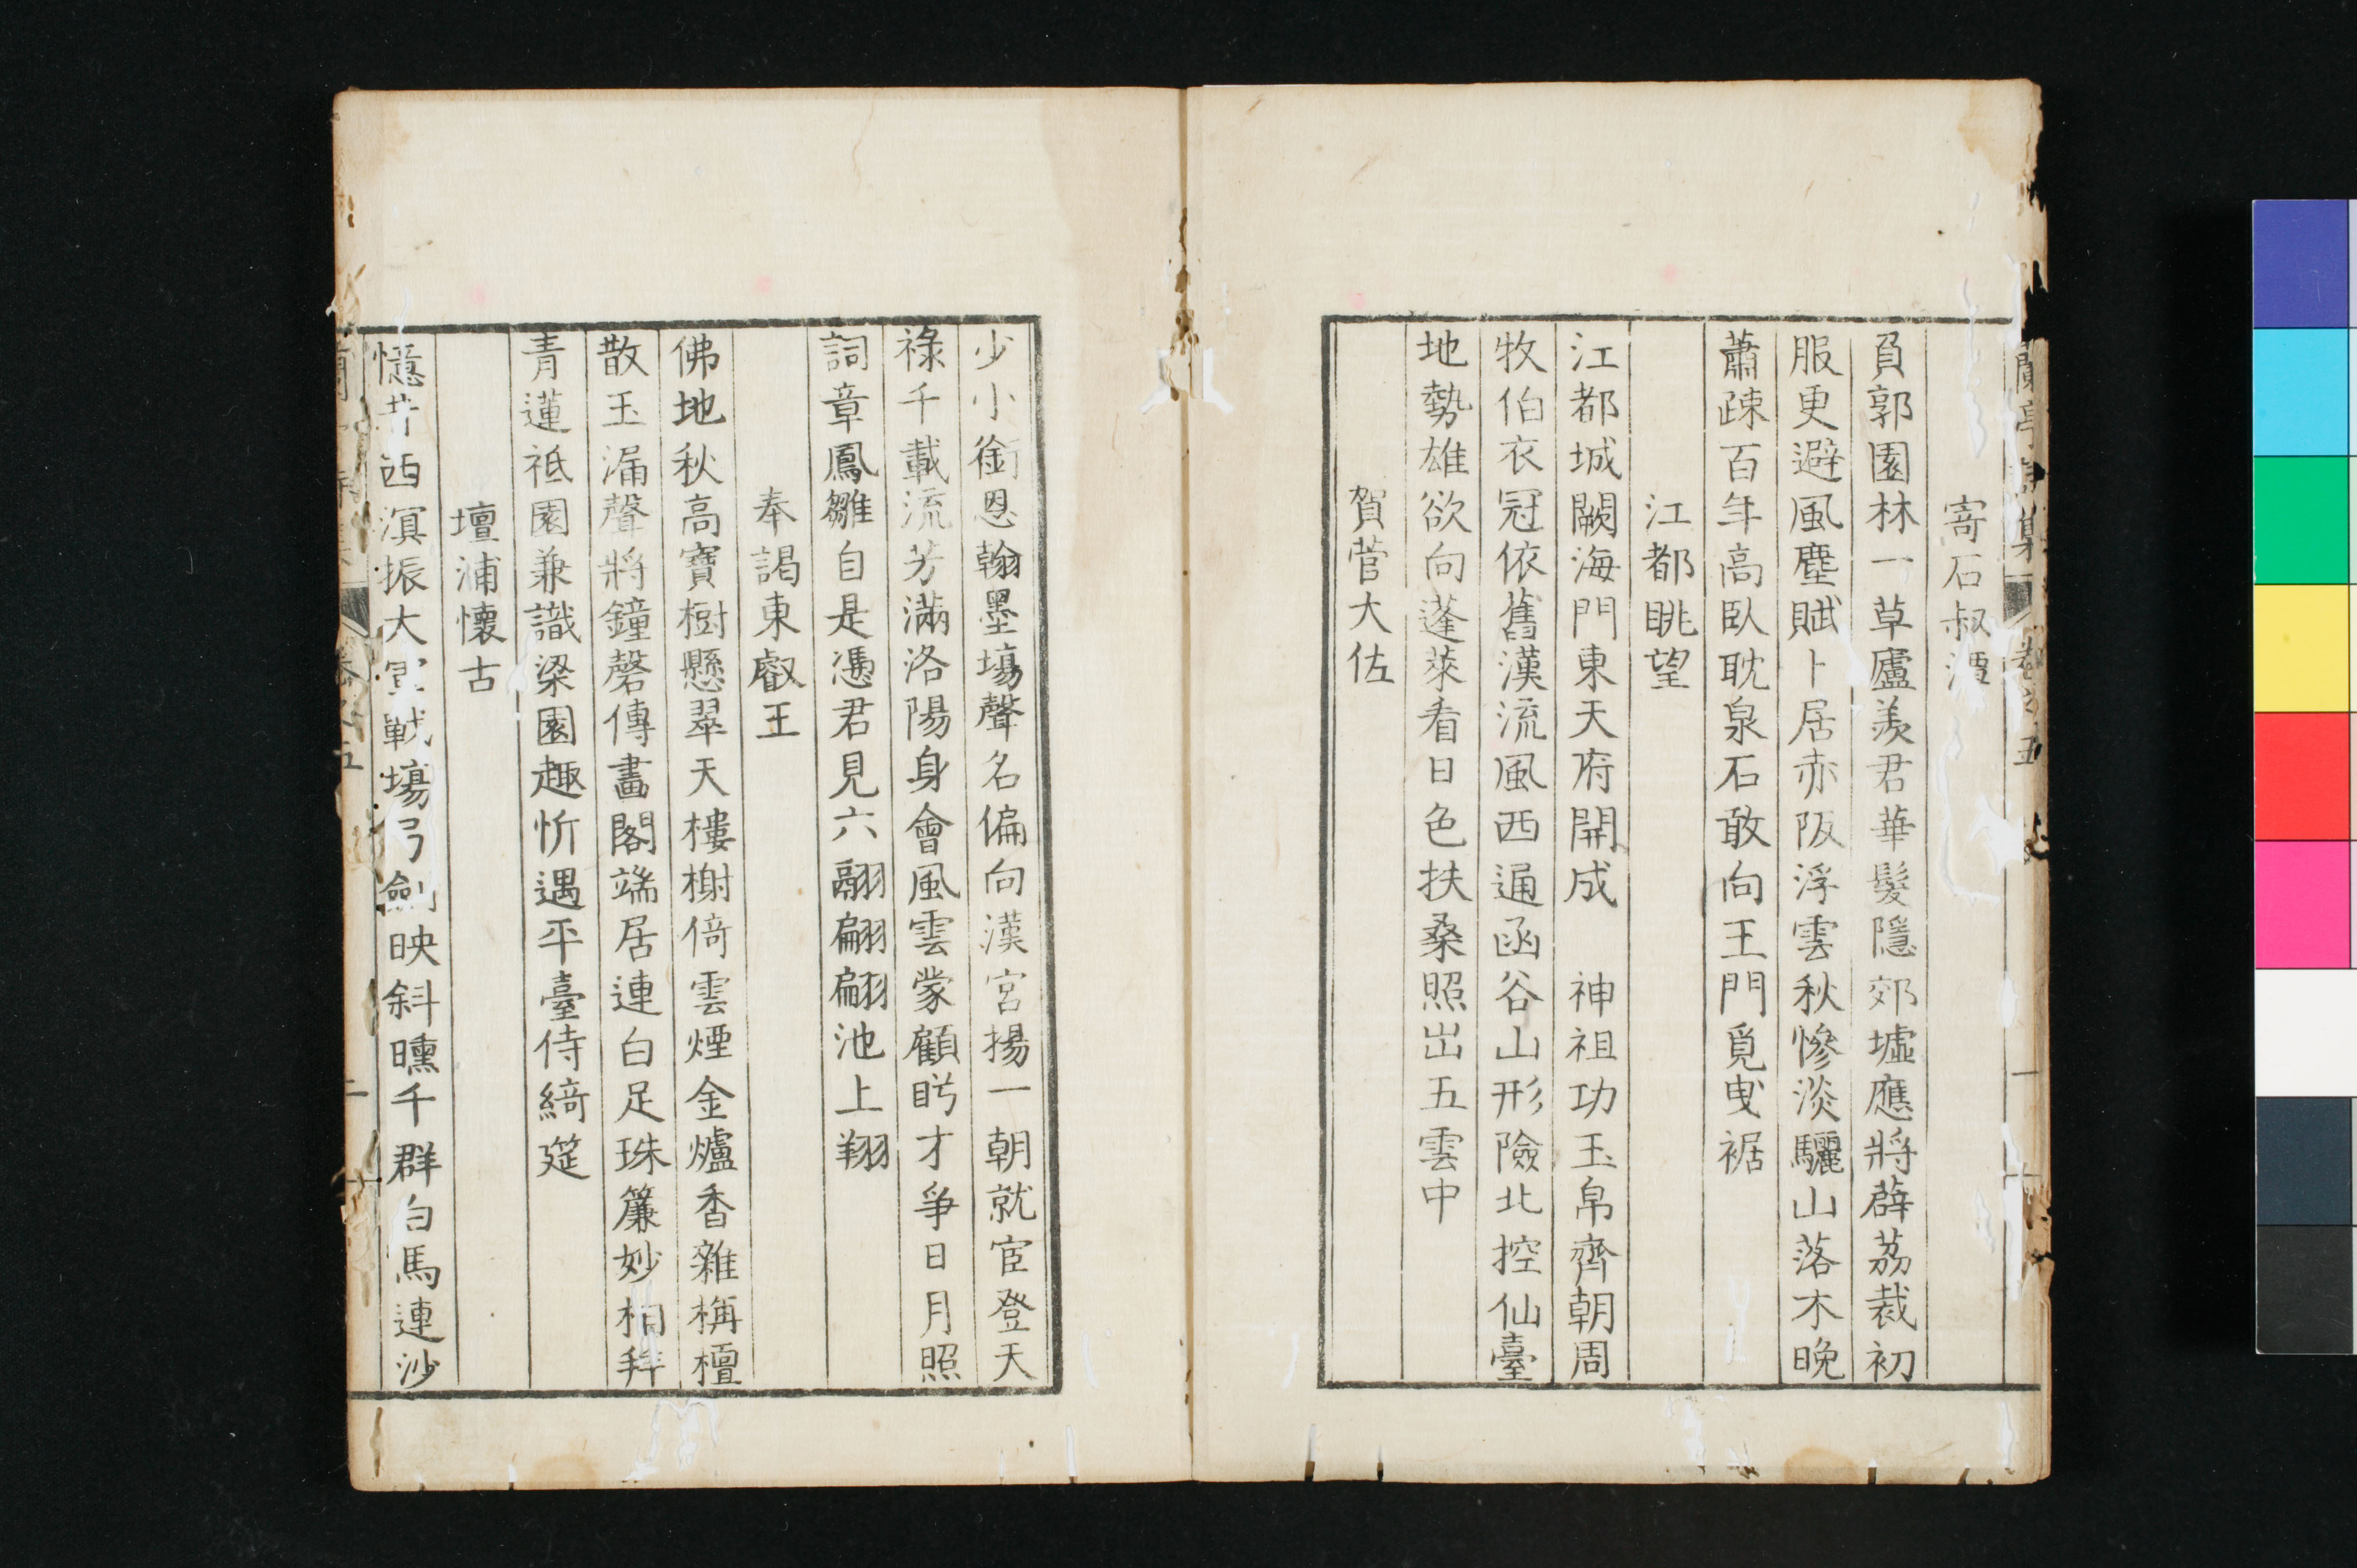 寄石叔潭
負郭園林一草廬羨君華髮隱郊墟應將薜荔裁初
服更避風塵賦卜居赤阪浮雲秋慘淡驪山落木晚
蕭疎百年高臥耽泉石敢向王門覓曳裾
江都眺望
江都城闕海門東天府開成　神祖功玉帛齊朝周
牧伯衣冠依舊漢流風西通函谷山形險北控仙臺
地勢雄欲向蓬萊看日色扶桑照出五雲中
賀菅大佐
少小銜恩翰墨場聲名偏向漢宮揚一朝就宦登天
祿千載流芳滿洛陽身會風雲蒙顧眄才爭日月照
詞章鳳雛自是憑君見六翮翩翩池上翔
奉謁東叡王
佛地秋高寶樹懸翠天樓榭倚雲煙金爐香雜栴檀
散玉漏聲將鐘磬傳畫閣端居連白足珠簾妙相拜
青蓮祇園兼識梁園趣忻遇平臺侍綺筵
壇浦懷古
憶昔西溟振大軍戰場弓劍映斜曛千群白馬連沙